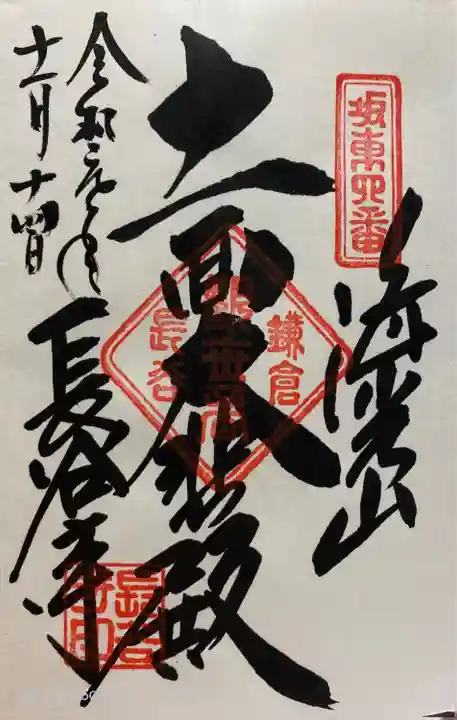 坂東四番
海光山
十一面大悲殿
鎌倉
長谷
長谷寺
長谷寺印
令和
月十四日